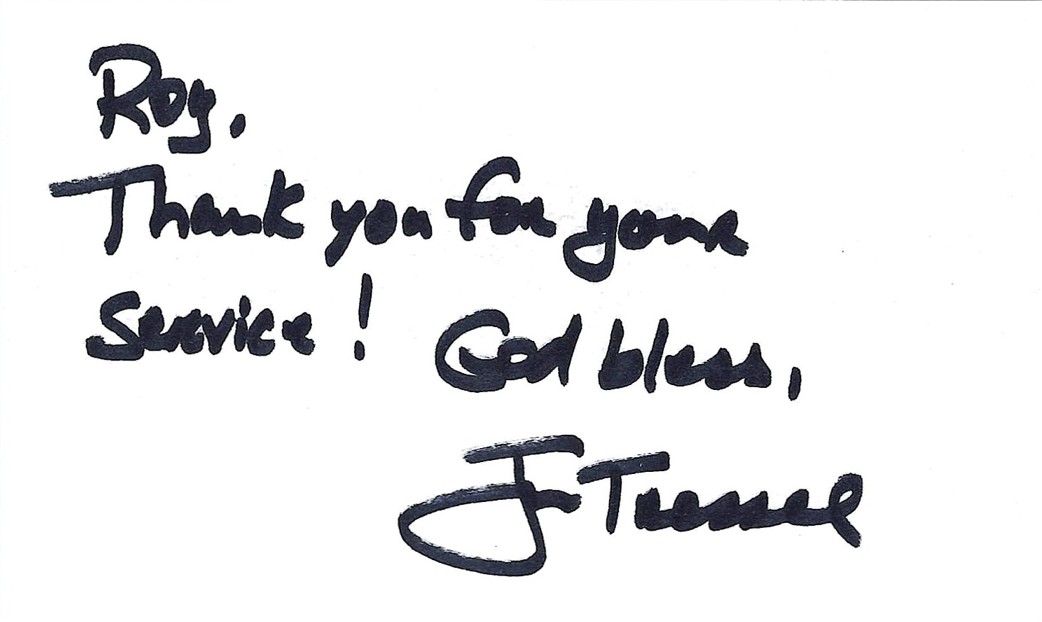 Roy,
Thank you for your
service! God bless,
Jim Tressel